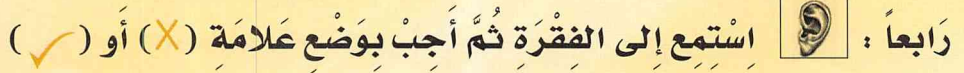 رَابعاً : اسْتَمِع إِلى الفِقْرَةِ ثُمَّ أَجِبْ بِوَضْعِ عَلامَةِ (X) أَو (✓)